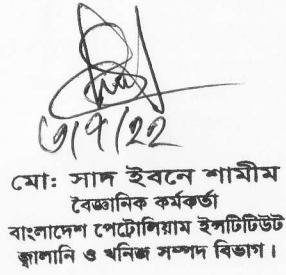 মো: সাদ ইবনে শামীম
বৈজ্ঞানিক কর্মকর্তা
বাংলাদেশ পেট্রোলিয়াম ইন্সটিটিউট
জ্বালানি ও খনিজ সম্পদ বিভাগ।